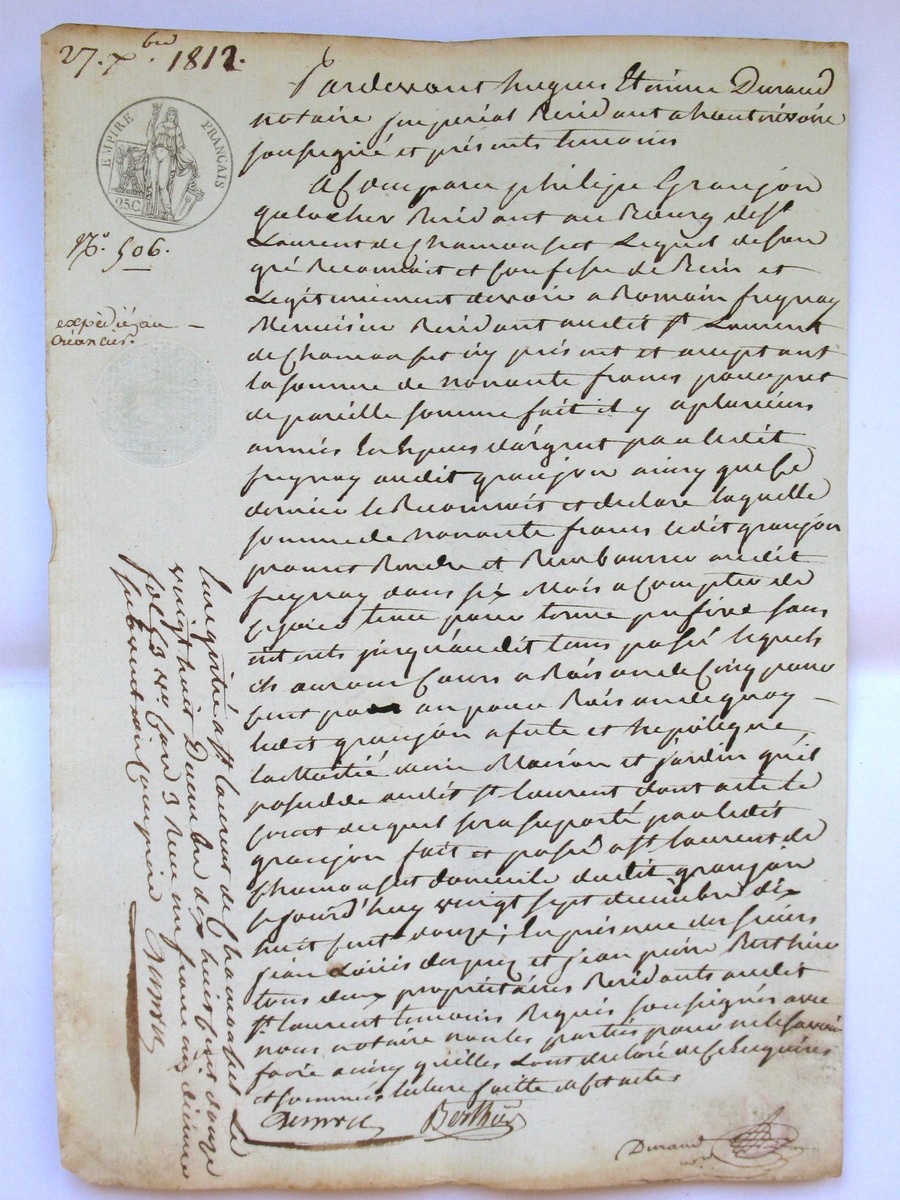 27. Xbre 1812.
EMPIRE FRANÇAIS
25 C.
No. 506.
expédiéz au
créancier.
Pardevant hugues Etienne Durand
notaire imperial Residant a hautrivoire
soussigné et présents temoins
A Comparu philipe Granjon
galocher Residant au Bourg de st
Laurent de Chamousset Lequel de son
gré Reconnoit et Confesse de Bien et
Légitimement devoir a Romain fugnay
Menuisier Residant audit st Laurent
de Chamousset icy présent et aceptant
la somme de nonante francs pour pret
de pareille somme fait il y a plusieurs
années En Espèces d'argent par ledit
fugnay audit granjon ainsy que Ce
dernier le Reconnois et declare laquelle
somme de nonante francs ledit granjon
promet Rendre et Rembourser audit
fugnay dans six Mois a Compter de
Ce jour tenus pour terme prefixe sans
interets jusqu'audit tems passé lequels
ils auront Cours a Raison de Cinq pour
Cent par an pour Raison de quoy
ledit granjon afecte et hepotèque
la Moitié d'une Maison et jardin qu'il
possedde audit st laurent dont acte le
cout duquel sera suporté par ledit
granjon fait et passé a st Laurent de
Chamousset domicile dudit granjon
Cejourd'huy vingt sept decembre dix
huit Cent douze; En présence des sieurs
jean Louis et jean pierre Berthier
tous deux propriétaires Residants audit
st laurent temoins Requis soussignés avec
nous notaire non les parties pour ne le savoir
faire ainsy qu'elles L'ont declaré de Ce Enquises
et sommées lecture faitte a Et actes
Berthier
Durand
Enregistré a st laurent de Chamousset Le
vingt huit Decembre dix huit Cent douze
fol. 63 Vo Case 3 Reçu un franc dix Centimes
subvention Comprise